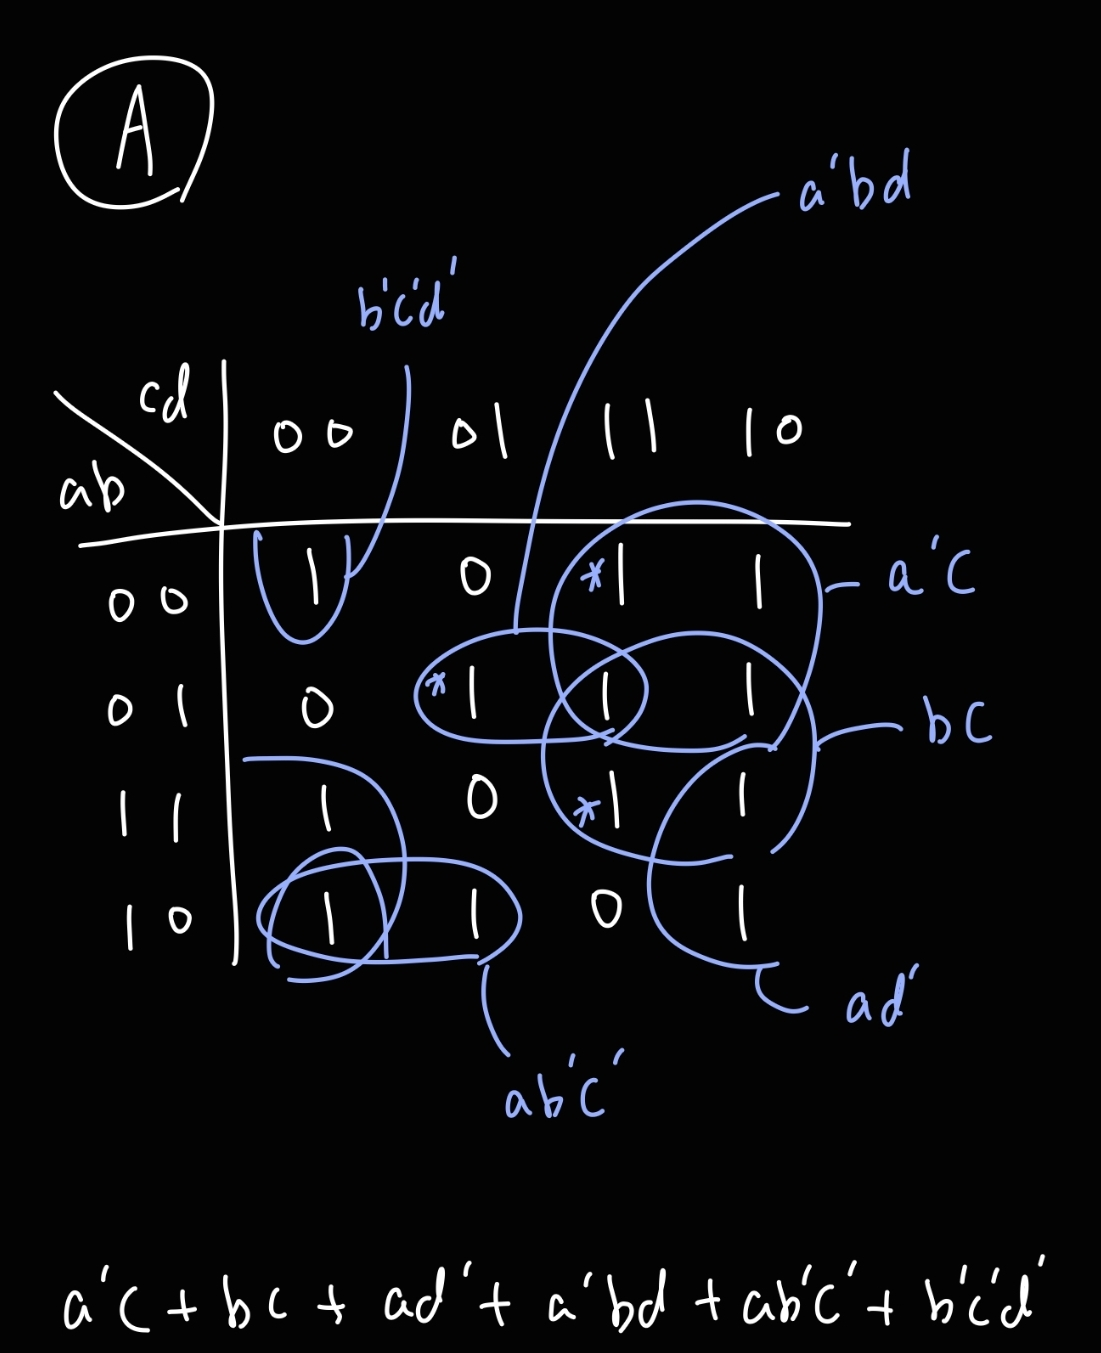 A
a'bd
b'c'd'
cd
ab
00 01 11 10
00 1 0 *1 1
a'c
01 0 *1 1 1
bc
11 1 0 *1 1
10 1 1 0 1
ad'
ab'c'
a'c + bc + ad' + a'bd + ab'c' + b'c'd'